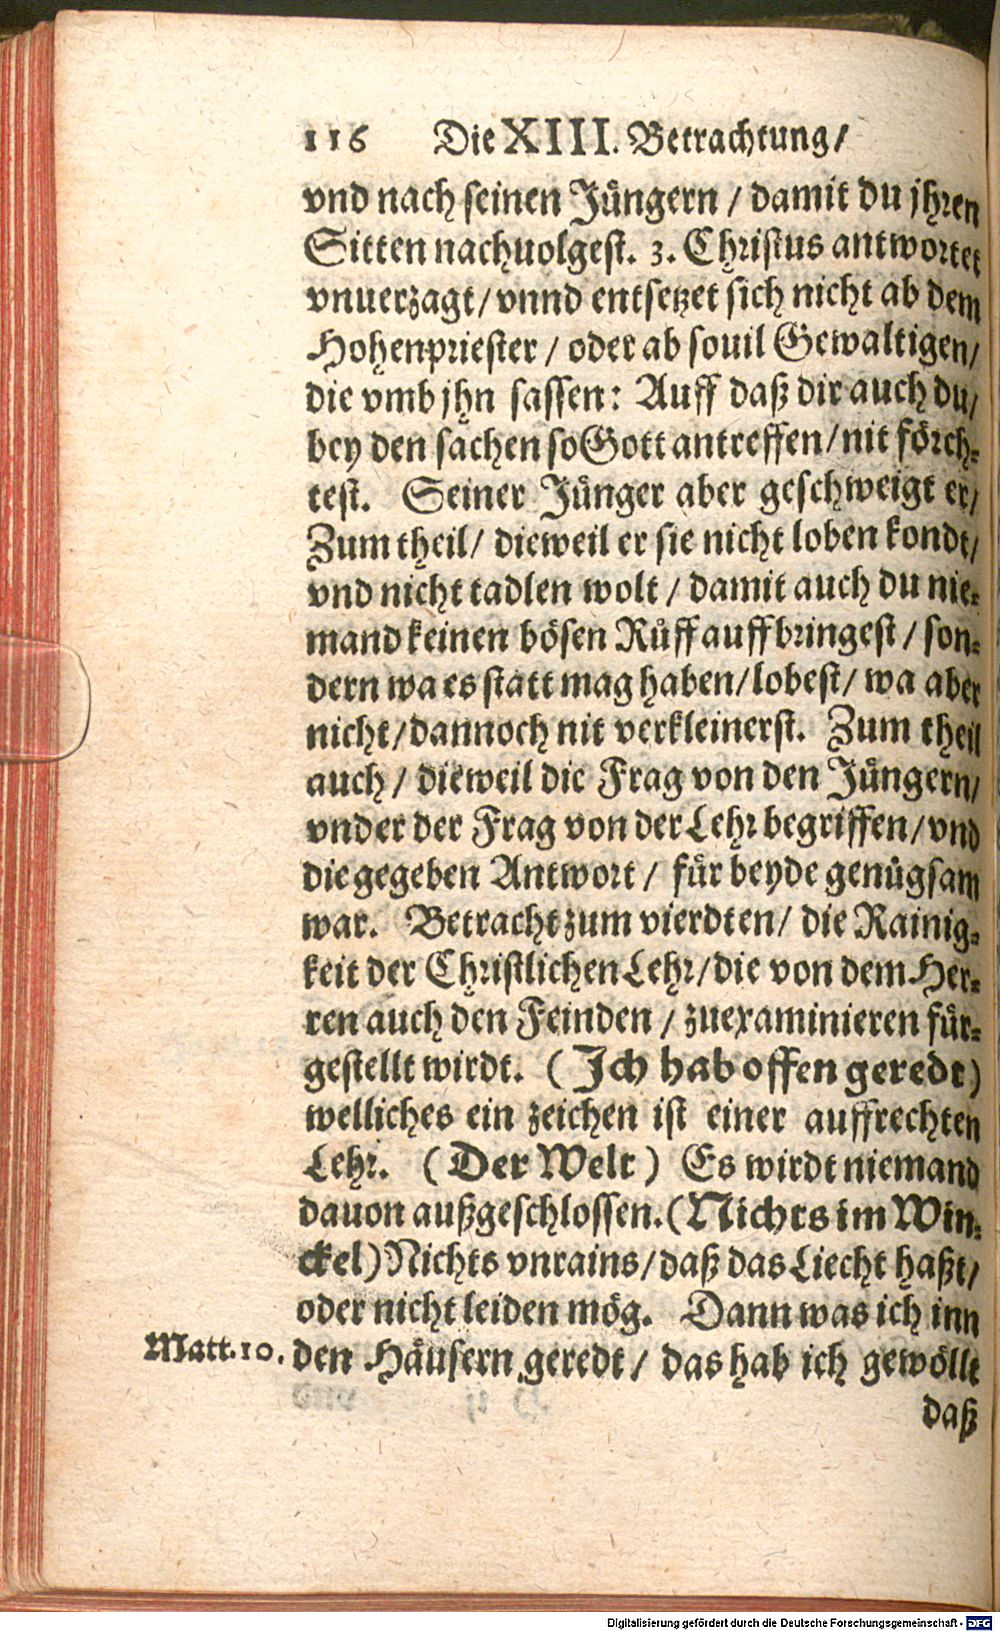 116 Die XIII. Betrachtung/
vnd nach seinen Jüngern / damit du jhren
Sitten nachuolgest. 3. Christus antwortet
vnuerzagt/ vnnd entsetzet sich nicht ab dem
Hohenpriester / oder ab souil Gewaltigen/
die vmb jhn sassen: Auff daß dir auch du/
bey den sachen so Gott antreffen/ nit förch-
test. Seiner Jünger aber geschweigt er/
Zum theil/ dieweil er sie nicht loben kondt/
vnd nicht tadlen wolt / damit auch du nie-
mand keinen bösen Růff auffbringest / son-
dern wa es statt mag haben/ lobest/ wa aber
nicht/ dannoch nit verkleinerst. Zum theil
auch / dieweil die Frag von den Jüngern/
vnder der Frag von der Lehr begriffen/ vnd
die gegeben Antwort / für beyde genůgsam
war. Betracht zum vierdten/ die Rainig-
keit der Christlichen Lehr/ die von dem Her-
ren auch den Feinden / zuexaminieren für-
gestellt wirdt. ( Jch hab offen geredt)
welliches ein zeichen ist einer auffrechten
Lehr. ( Der Welt ) Es wirdt niemand
dauon außgeschlossen. (Nichts im Win-
ckel) Nichts vnrains/ daß das Liecht haßt/
oder nicht leiden mög. Dann was ich inn
Matt. 10. den Häusern geredt/ das hab ich gewöllt
daß
Digitalisierung gefördert durch die Deutsche Forschungsgemeinschaft - DFG